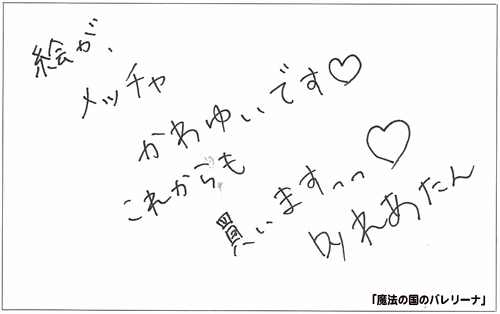 絵が、
メッチャ
かわゆいです♡
これからも
買います^^♡
byれあたん
「魔法の国のバレリーナ」